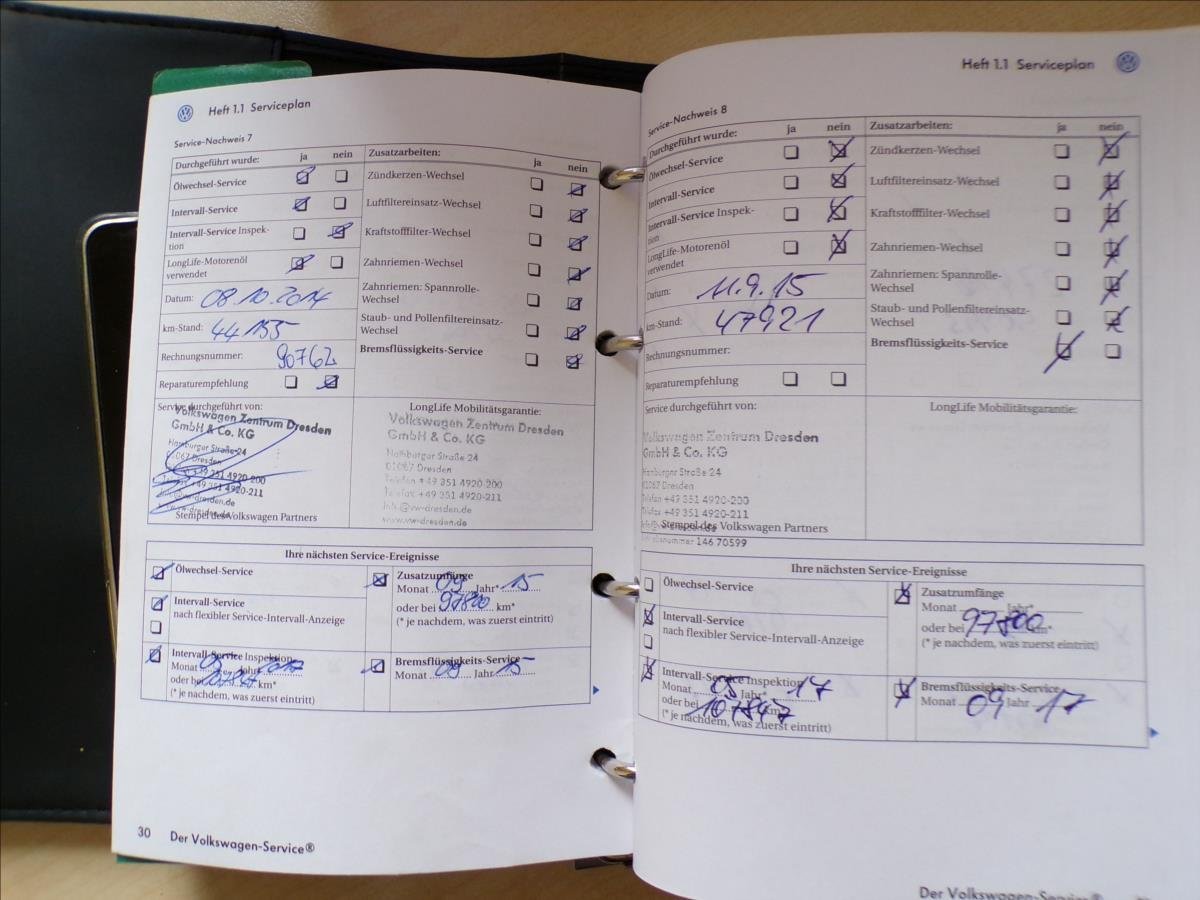 Heft 1.1 Serviceplan
Service-Nachweis 7
Durchgeführt wurde: ja nein
Ölwechsel-Service
Intervall-Service
Intervall-Service Inspek-
tion
LongLife-Motorenöl
verwendet
Datum: 08.10.2014
km-Stand: 44155
Rechnungsnummer: 90762
Reparaturempfehlung
Zusatzarbeiten: ja nein
Zündkerzen-Wechsel
Luftfiltereinsatz-Wechsel
Kraftstofffilter-Wechsel
Zahnriemen-Wechsel
Zahnriemen: Spannrolle-
Wechsel
Staub- und Pollenfiltereinsatz-
Wechsel
Bremsflüssigkeits-Service
Service durchgeführt von:
Volkswagen Zentrum Dresden
GmbH & Co. KG
Hamburger Straße 24
01067 Dresden
+49 351 4920-200
+49 351 4920-211
info@vw-dresden.de
www.vw-dresden.de
Stempel des Volkswagen Partners
LongLife Mobilitätsgarantie:
Volkswagen Zentrum Dresden
GmbH & Co. KG
Hamburger Straße 24
01067 Dresden
Telefon +49 351 4920-200
Telefax +49 351 4920-211
info@vw-dresden.de
www.vw-dresden.de
Ihre nächsten Service-Ereignisse
Ölwechsel-Service
Intervall-Service
nach flexibler Service-Intervall-Anzeige
Intervall-Service Inspektion
Monat 09 Jahr 2017
oder bei 107847 km*
(* je nachdem, was zuerst eintritt)
Zusatzumfänge
Monat 09 Jahr* 15
oder bei 97800 km*
(* je nachdem, was zuerst eintritt)
Bremsflüssigkeits-Service
Monat 09 Jahr 15
30 Der Volkswagen-Service®
Heft 1.1 Serviceplan
Service-Nachweis 8
Durchgeführt wurde: ja nein
Ölwechsel-Service
Intervall-Service
Intervall-Service Inspek-
tion
LongLife-Motorenöl
verwendet
Datum: 11.9.15
km-Stand: 47921
Rechnungsnummer:
Reparaturempfehlung
Zusatzarbeiten: ja nein
Zündkerzen-Wechsel
Luftfiltereinsatz-Wechsel
Kraftstofffilter-Wechsel
Zahnriemen-Wechsel
Zahnriemen: Spannrolle-
Wechsel
Staub- und Pollenfiltereinsatz-
Wechsel
Bremsflüssigkeits-Service
Service durchgeführt von:
Volkswagen Zentrum Dresden
GmbH & Co. KG
Hamburger Straße 24
01067 Dresden
Telefon +49 351 4920-200
Telefax +49 351 4920-211
info@vw-dresden.de
Stempel des Volkswagen Partners
146 70599
LongLife Mobilitätsgarantie:
Ihre nächsten Service-Ereignisse
Ölwechsel-Service
Intervall-Service
nach flexibler Service-Intervall-Anzeige
Intervall-Service Inspektion
Monat 09 Jahr* 17
oder bei 107847 km*
(* je nachdem, was zuerst eintritt)
Zusatzumfänge
Monat Jahr*
oder bei 97800 km*
(* je nachdem, was zuerst eintritt)
Bremsflüssigkeits-Service
Monat 09 Jahr 17
Der Volkswagen-Service®